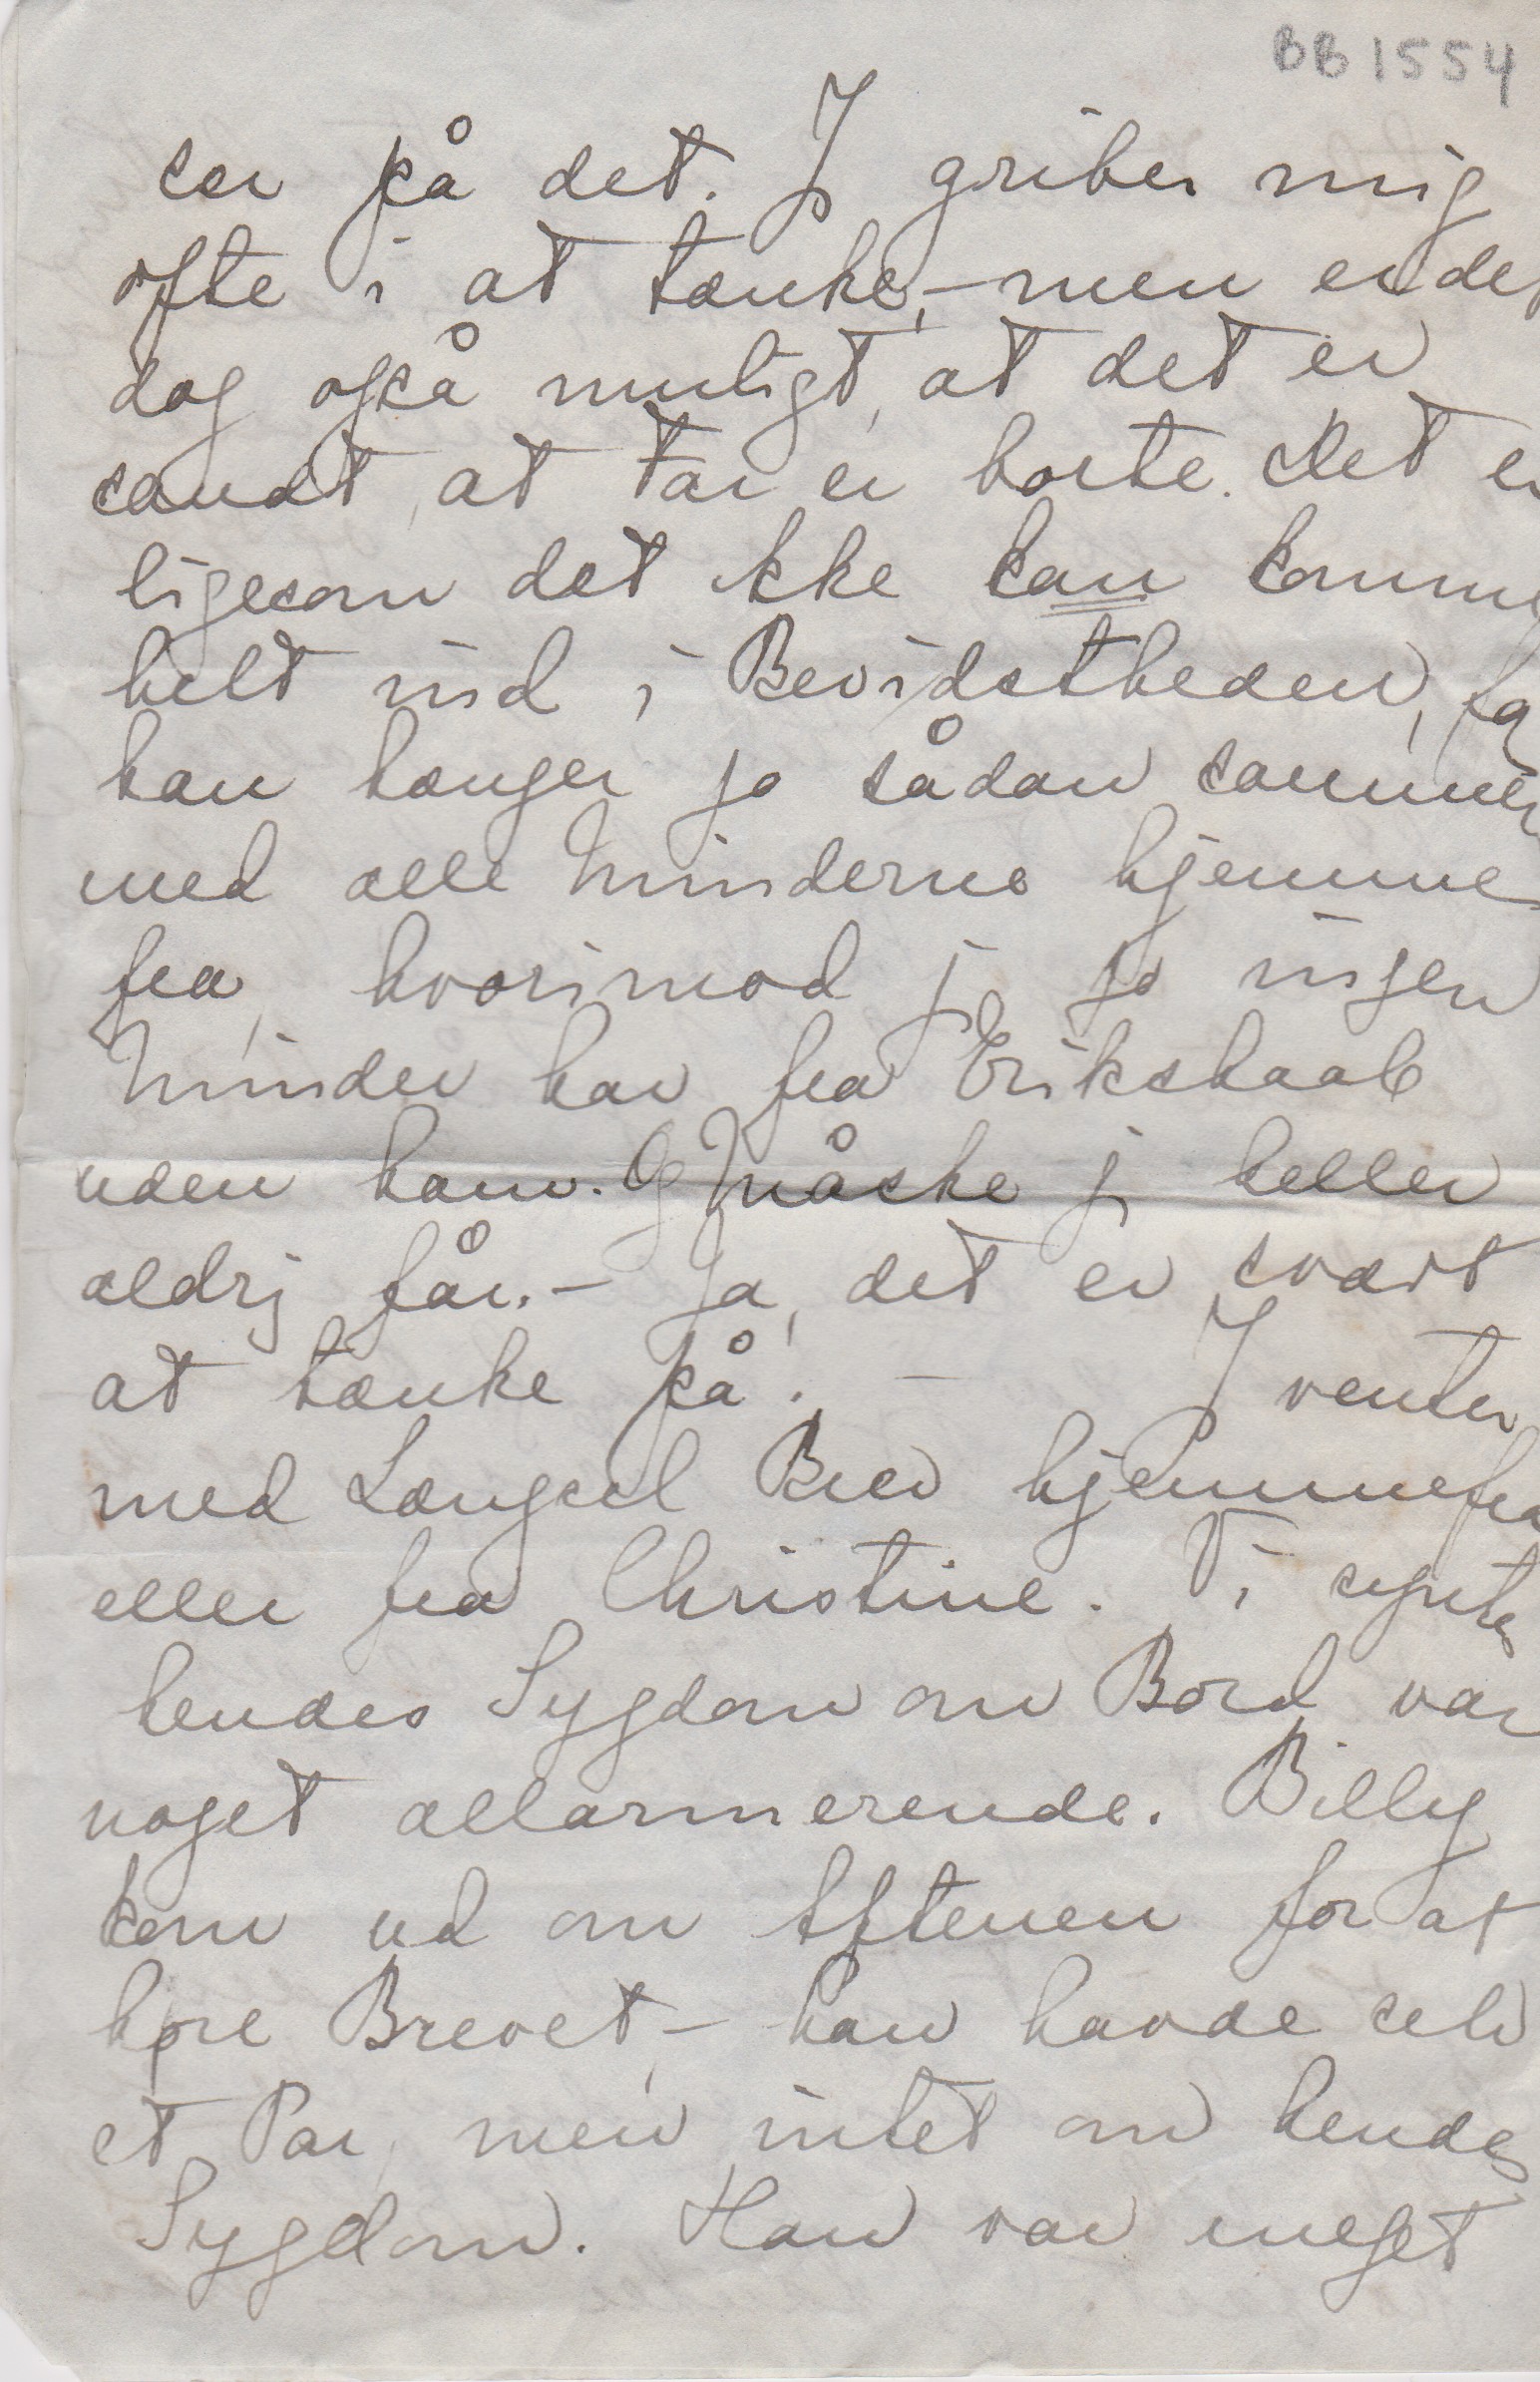 BB 1554
ser på det. J griber mig
ofte i at tænke, – men er det
dog også muligt, at det er
sandt, at Far er borte. Det er
ligesom det ikke kan komme
helt ind i Bevidstheden, for
han hænger jo sådan sammen
med alle Minderne hjemme
fra, hvorimod j jo ingen
Minder har fra Erikshaab
uden ham. Og Måske j heller
aldrij får. – Ja, det er svært
at tænke på. – J venter
med Længsel Brev hjemmefra
eller fra Christine. Vi syntes
hendes Sygdom om Bord var
noget allarmerende. Billy
kom ud om Aftenen for at
høre Brevet, – han havde selv
et Par, men intet om hendes
Sygdom. Han var meget